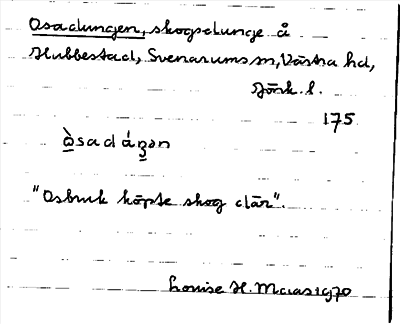 Osadungen, skogsdunge å
Hubbestad, Svenarums sn, Västra hd,
Jönk. l.
175
"Osbruk köpte skog där".
Louise H. Maias 1970